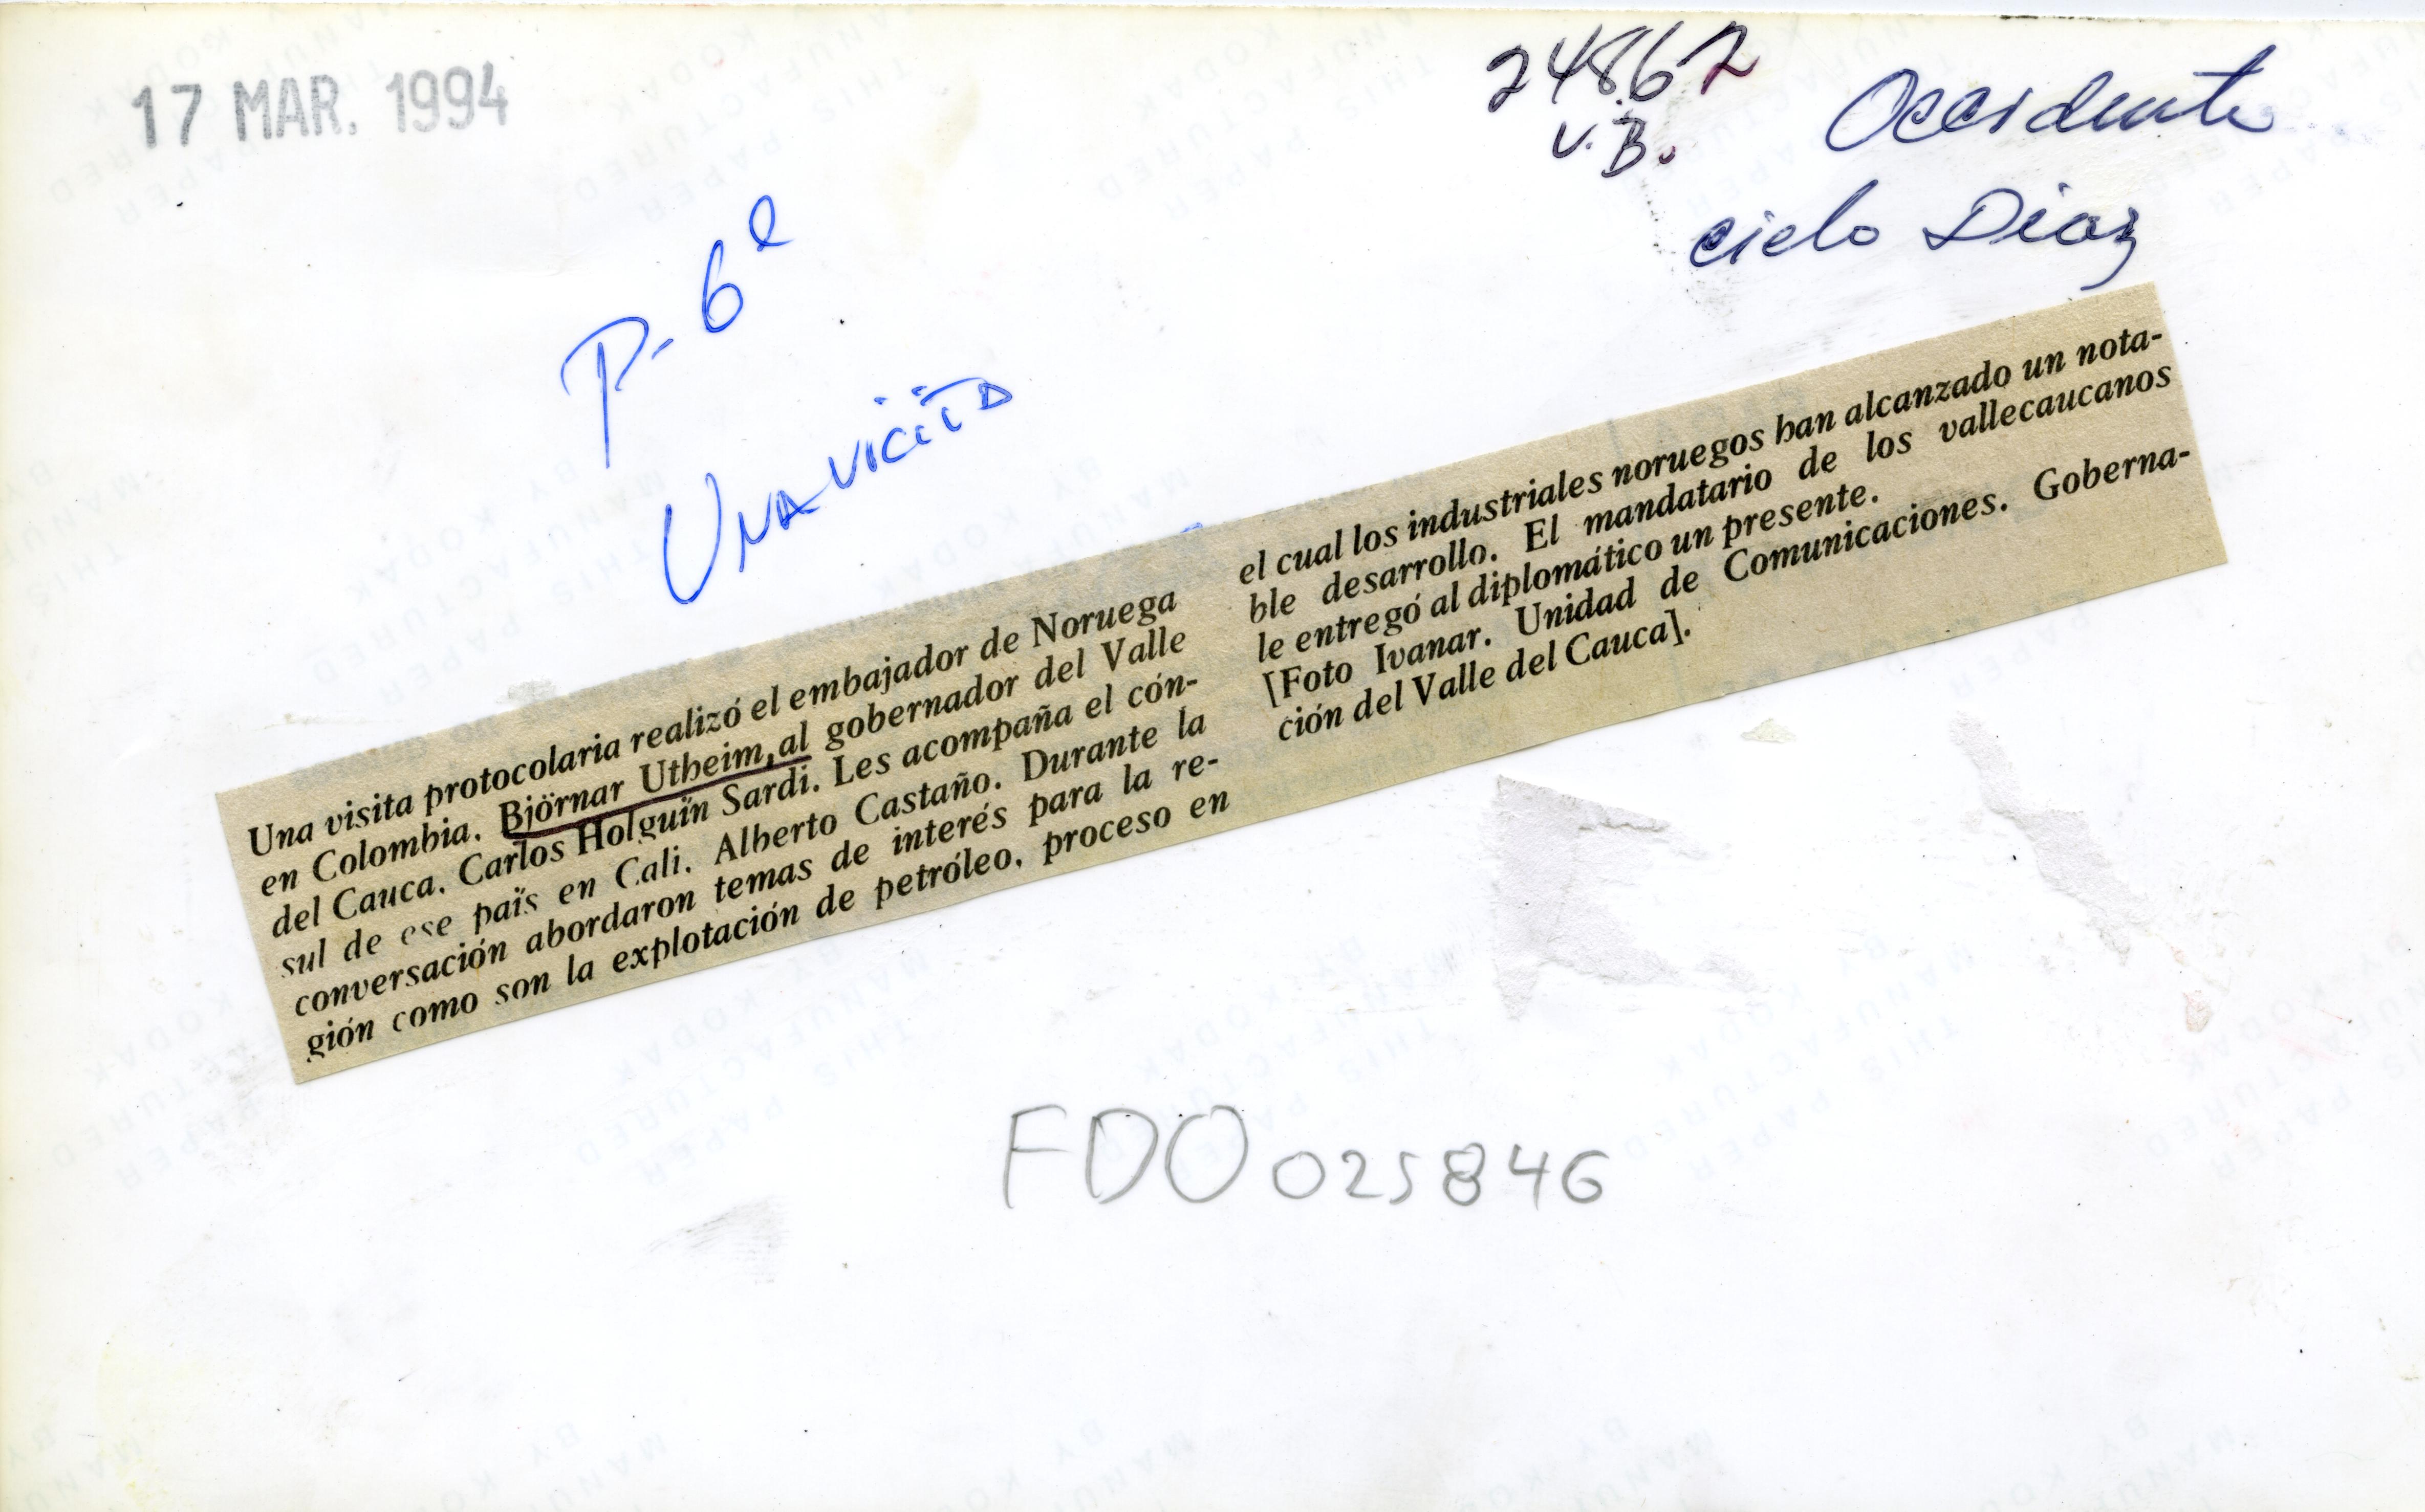 17 MAR. 1994
24862
V.B.
Occidente
cielo Diaz
P-6ª
UNA viciTA
Una visita protocolaria realizó el embajador de Noruega
en Colombia, Björnar Utheim, al gobernador del Valle
del Cauca, Carlos Holguín Sardi. Les acompaña el cón-
sul de ese país en Cali, Alberto Castaño. Durante la
conversación abordaron temas de interés para la re-
gión como son la explotación de petróleo, proceso en
el cual los industriales noruegos han alcanzado un nota-
ble desarrollo. El mandatario de los vallecaucanos
le entregó al diplomático un presente.
[Foto Ivanar. Unidad de Comunicaciones. Goberna-
ción del Valle del Cauca].
FDO 025846